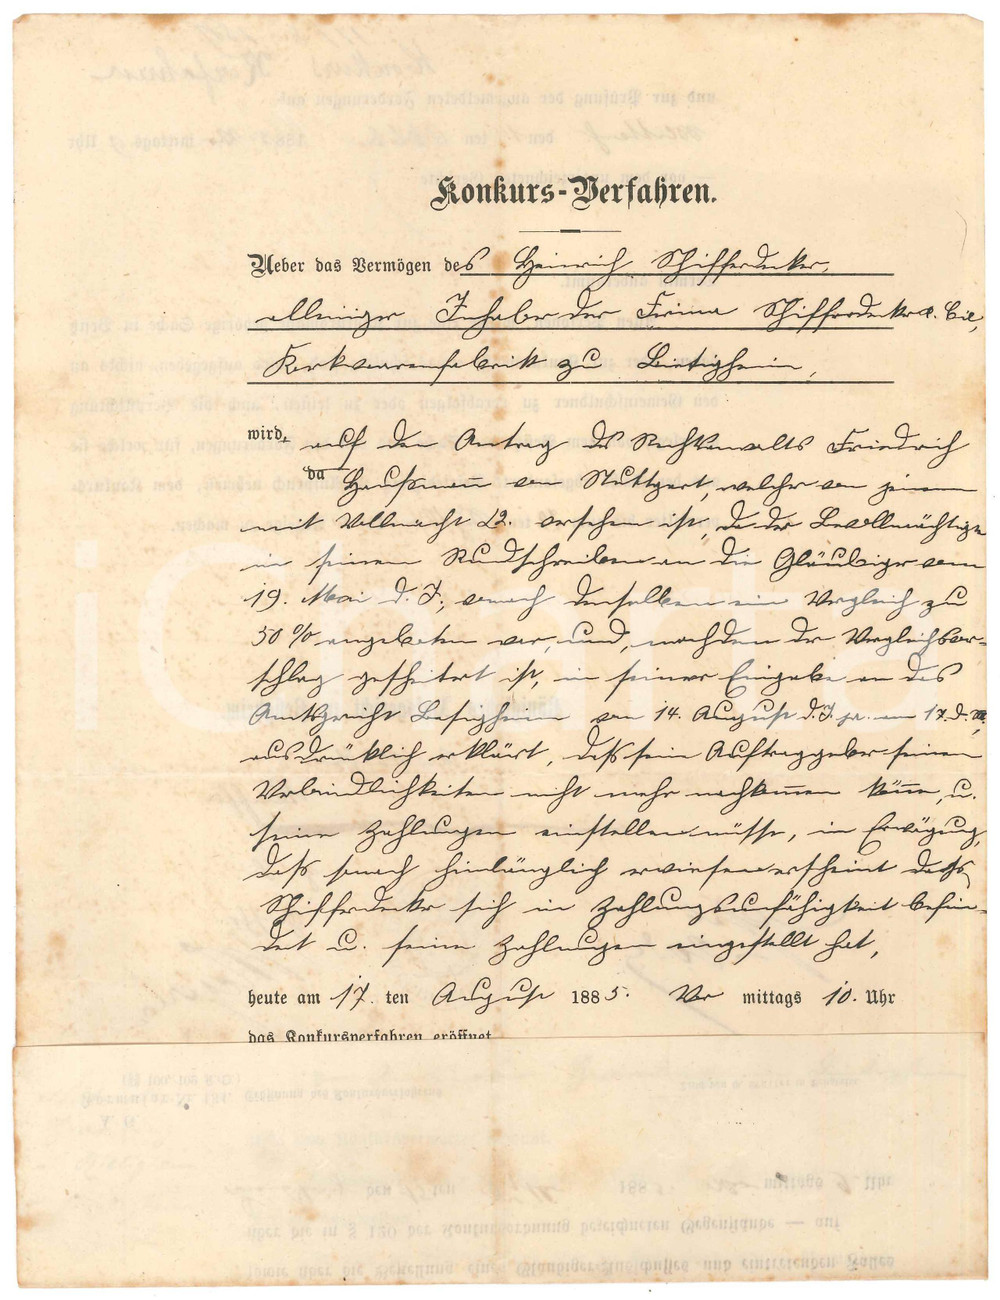 Konkurs-Verfahren.
Ueber das Vermögen des Heinrich Schifferdecker,
alleiniger Inhaber der Firma Schifferdecker & Cie,
Korkwarenfabrik zu Bietigheim,
wird, auf den Antrag des Rechtsanwalts Friedrich
da Haußmann von Stuttgart, welcher von jenem
mit Vollmacht versehen ist, da der Bevollmächtigte
in seinem Rundschreiben an die Gläubiger vom
19. Mai d. J., wonach denselben ein Vergleich zu
50 % angeboten war, und, nachdem der Vergleichsvor-
schlag gescheitert ist, in seiner Eingabe an das
Amtsgericht Besigheim von 14. August d. J. pr. am 17. d. M.
ausdrücklich erklärt, dass sein Auftraggeber seinen
Verbindlichkeiten nicht mehr nachkommen könne, u.
seine Zahlungen einstellen müsse, in Erwägung,
dass sonach hinlänglich erwiesen erscheint dass
Schifferdecker sich in Zahlungsunfähigkeit befin-
det u. seine Zahlungen eingestellt hat,
heute am 17. ten August 1885. Vor mittags 10. Uhr
das Konkursverfahren eröffnet
iCharta